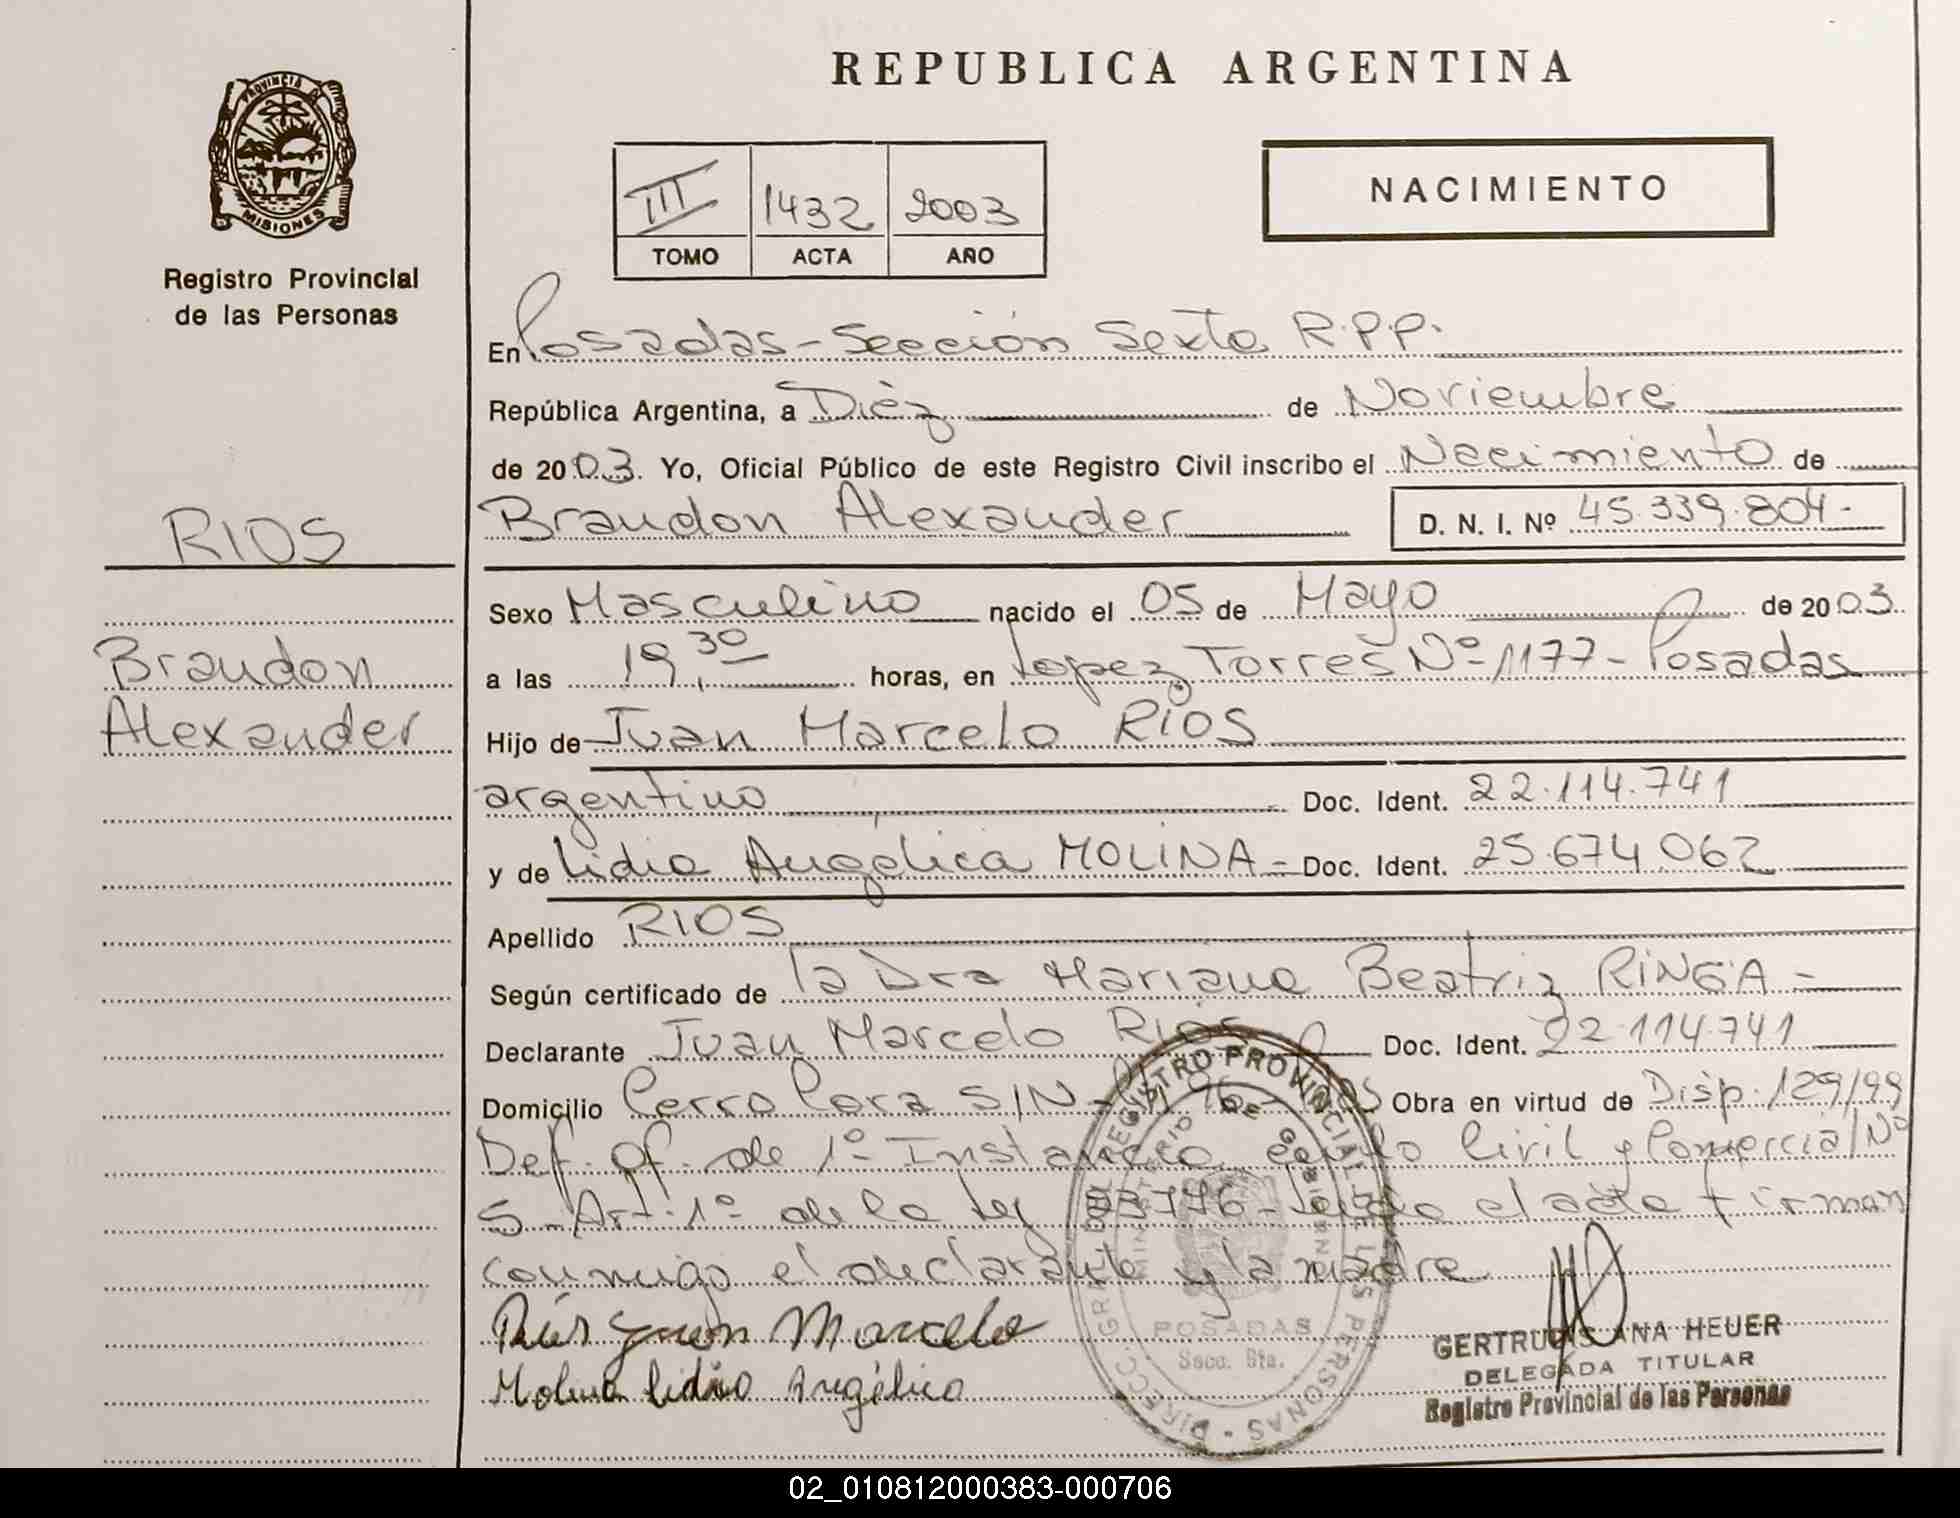 REPUBLICA ARGENTINA
PROVINCIA DE
MISIONES
Registro Provincial
de las Personas
NACIMIENTO
III 1432 2003
TOMO ACTA AÑO
En Posadas - Sección Sexta R.P.P.
República Argentina, a Diéz de Noviembre
de 2003. Yo, Oficial Público de este Registro Civil inscribo el Nacimiento de
RIOS
Brandon Alexander D. N. I. Nº 45.339.804-
Sexo Masculino nacido el 05 de Mayo de 2003.
Brandon
Alexander
a las 19,30 horas, en Lopez Torres Nº 1177 - Posadas
Hijo de Juan Marcelo RIOS
argentino Doc. Ident. 22.114.741
y de Lidia Angélica MOLINA = Doc. Ident. 25.674.062
Apellido RIOS
Según certificado de la Dra Mariana Beatriz RINGA =
Declarante Juan Marcelo Rios Doc. Ident. 22.114.741
Domicilio Cerro Cora S/N - Obra en virtud de Disp. 129/99
Def. Of. de 1º Instancia en lo Civil y Comercial Nº
5 - Art. 1º de la Ley - Leida el acta firman
conmigo el declarante y la madre
Ríos Juan Marcelo
Molina Lidia Angélica
DIRECC. GRAL. DEL REGISTRO PROVINCIAL DE LAS PERSONAS
MINISTERIO DE GOBIERNO
POSADAS
Secc. 6ta.
GERTRUDIS ANA HEUER
DELEGADA TITULAR
Registro Provincial de las Personas
02_010812000383-000706